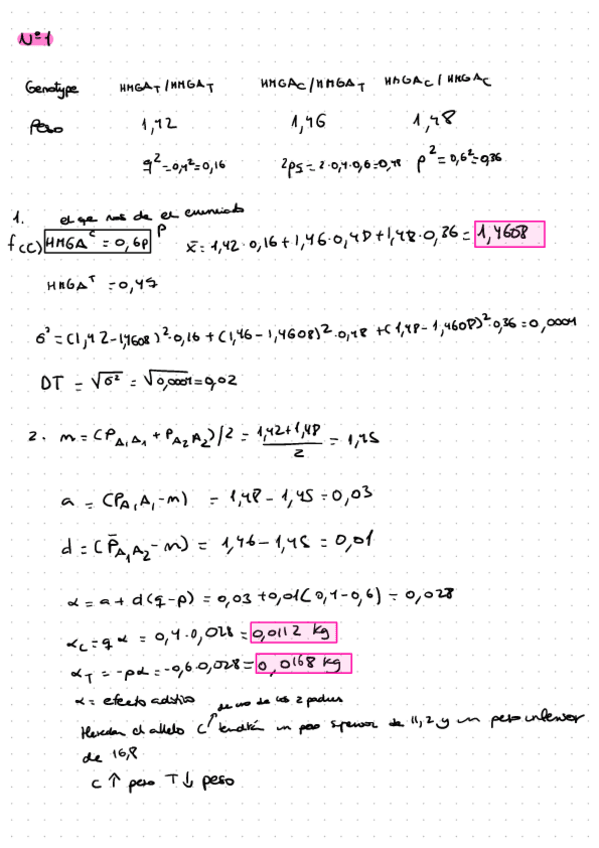 Nº1
Genotype HMGA_T/HMGA_T HMGA_C/HMGA_T HMGA_C/HMGA_C
Peso 1,42 1,46 1,48
q²=0,4²=0,16 2pq=2·0,4·0,6=0,48 p²=0,6²=0,36
1. el que nos da el enunciado
f(C) HMGA^C = 0,6p p x̄ = 1,42·0,16+1,46·0,48+1,48·0,36= 1,4608
HMGA^T = 0,4q
σ² = (1,42-1,4608)²·0,16 + (1,46-1,4608)²·0,48 + (1,48-1,4608)²·0,36 = 0,0004
DT = √σ² = √0,0004 = 0,02
2. m = (P_A₁A₁ + P_A₂A₂)/2 = (1,42+1,48)/2 = 1,45
a = (P_A₁A₁-m) = 1,48-1,45 = 0,03
d = (P̄_A₁A₂-m) = 1,46-1,45 = 0,01
α = a + d(q-p) = 0,03 + 0,01(0,4-0,6) = 0,028
α_C = q α = 0,4·0,028 = 0,0112 kg
α_T = -pα = -0,6·0,028 = 0,0168 kg
α = efecto aditivo
de uno de los 2 padres
Heredan el allelo C tendrán un peso superior de 11,2 y un peso inferior
de 16,8
C ↑ peso T ↓ peso